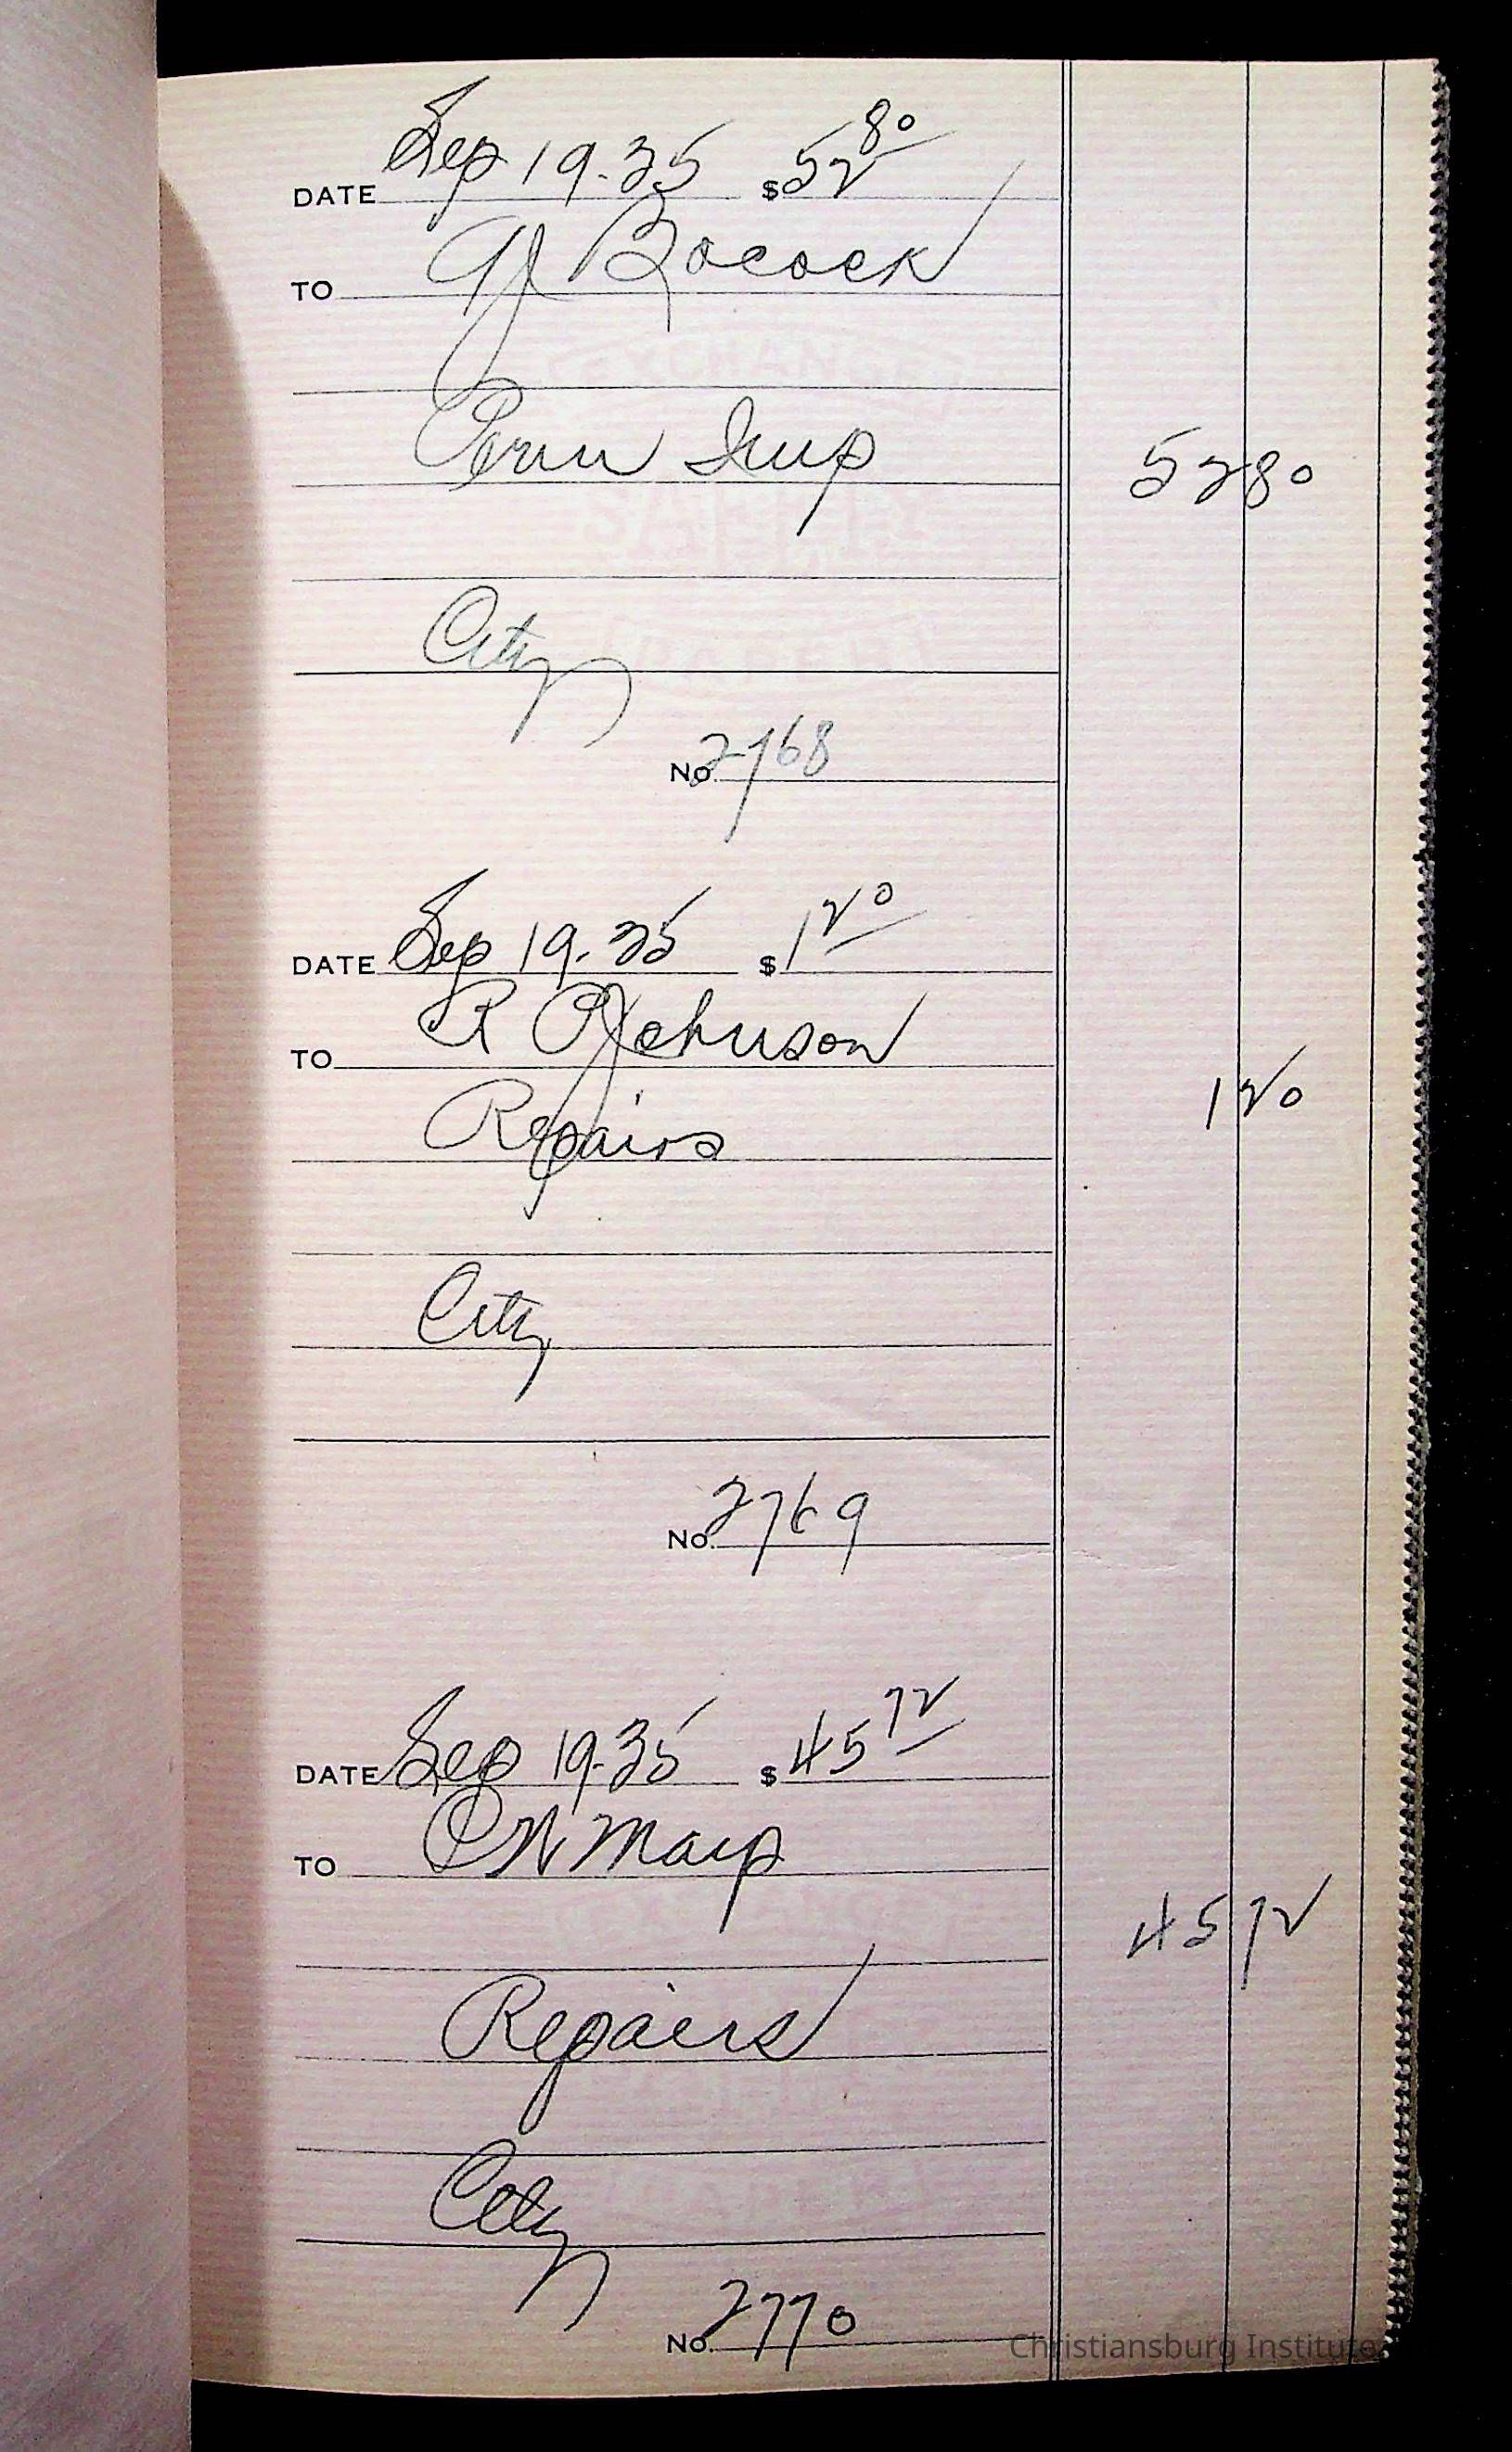 DATE Sep 19-35 $52 80
TO G J Bocock
Perm Imp 52 80
City
No. 2768
DATE Sep 19-35 $1 20
TO R O Johnson
Repairs 1 20
City
No. 2769
DATE Sep 19-35 $45 72
TO
45 72
Repairs
City
No. 2770
Christiansburg Institute